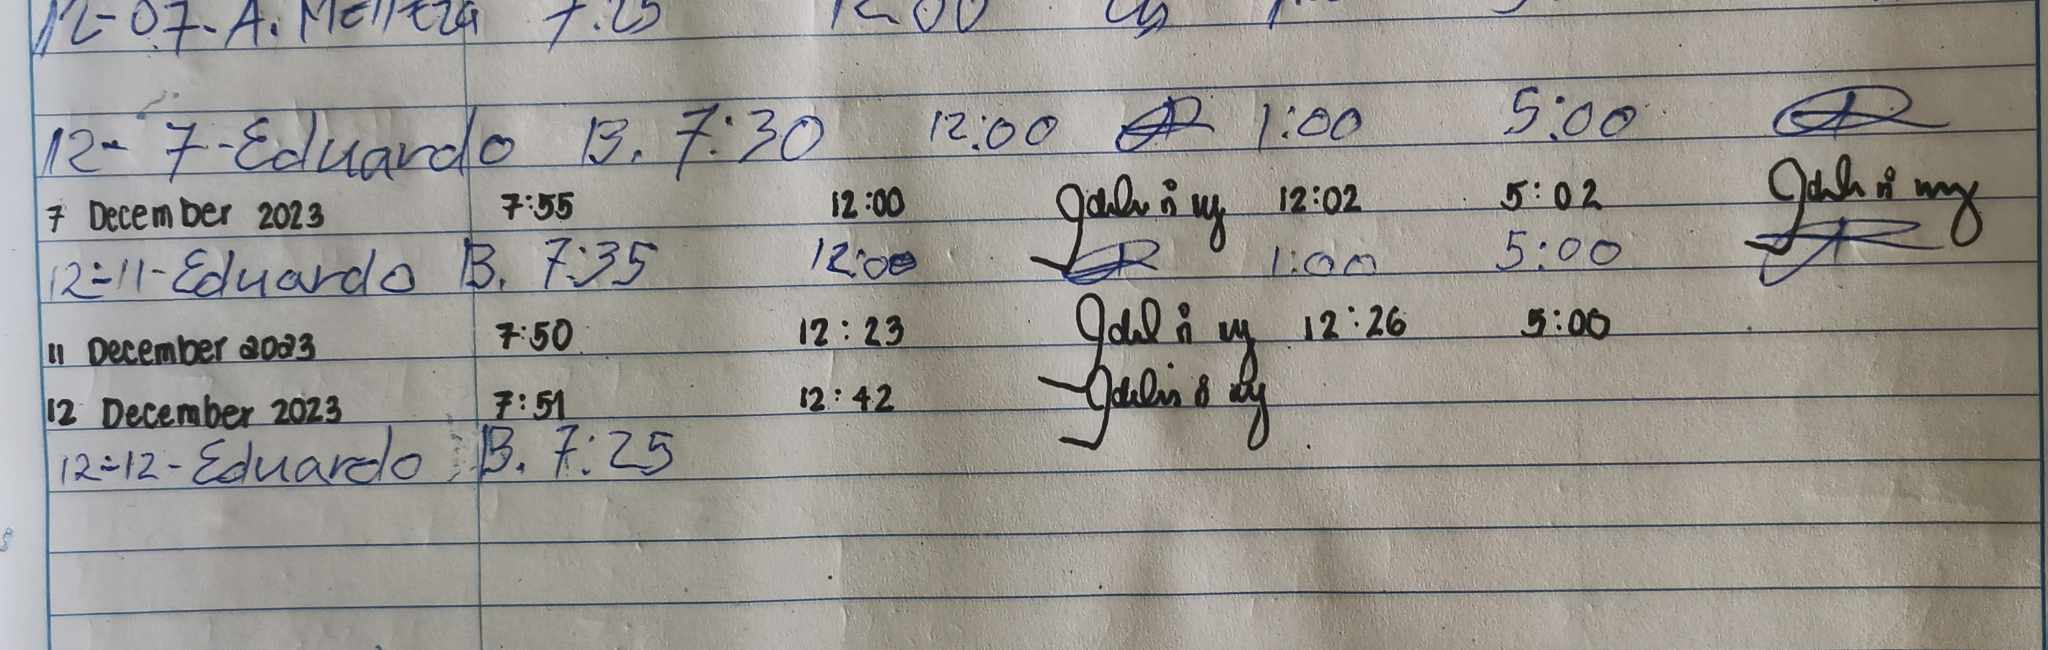 12-07-A. 7:25 12:00
12-7-Eduardo B. 7:30 12:00 1:00 5:00
7 December 2023 7:55 12:00 12:02 5:02
12-11-Eduardo B. 7:35 12:00 1:00 5:00
11 December 2023 7:50 12:23 12:26 5:00
12 December 2023 7:51 12:42
12-12-Eduardo B. 7:25